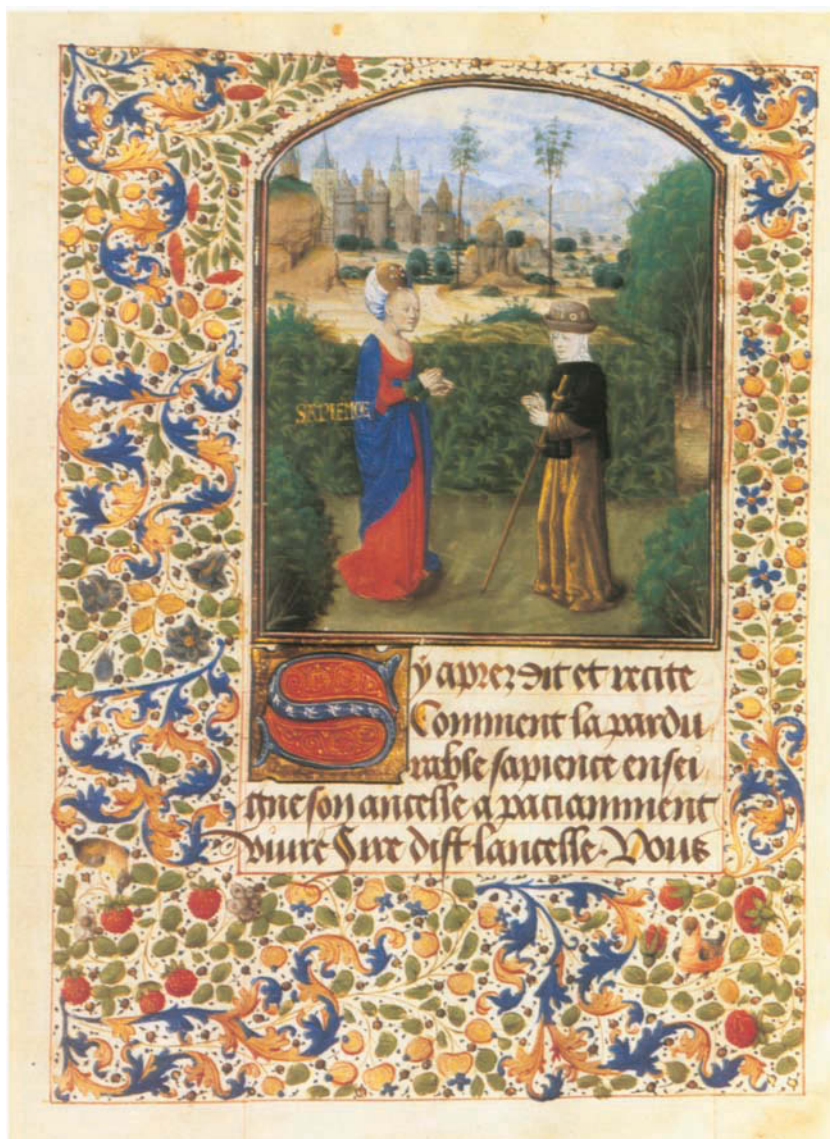 SAPIENCE
Sy aprez dit et recite
Comment la pardu
rable sapience ensei
gne son ancelle a paciamment
viure Sire dist lancelle. Vous